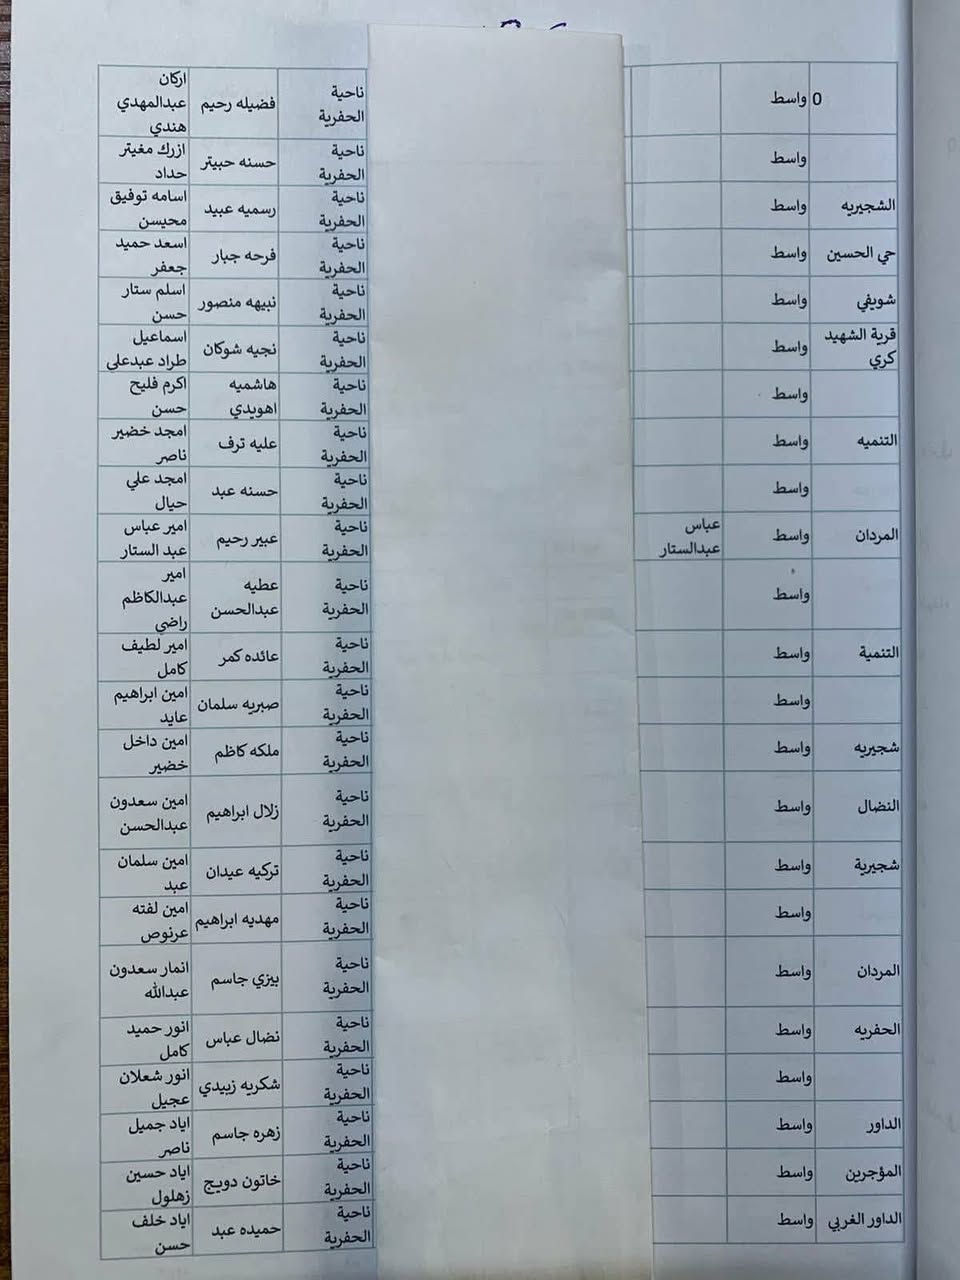 0 واسط ناحية الحفرية فضيله رحيم اركان عبدالمهدي هندي
واسط ناحية الحفرية حسنه حبيتر ازرك مغيتر حداد
الشجيريه واسط ناحية الحفرية رسميه عبيد اسامه توفيق محيسن
حي الحسين واسط ناحية الحفرية فرحه جبار اسعد حميد جعفر
شويفي واسط ناحية الحفرية نبيهه منصور اسلم ستار حسن
قرية الشهيد كري واسط ناحية الحفرية نجيه شوكان اسماعيل طراد عبدعلي
واسط ناحية الحفرية هاشميه اهويدي اكرم فليح حسن
التنميه واسط ناحية الحفرية عليه ترف امجد خضير ناصر
واسط ناحية الحفرية حسنه عبد امجد علي حيال
المردان واسط عباس عبدالستار ناحية الحفرية عبير رحيم امير عباس عبد الستار
واسط ناحية الحفرية عطيه عبدالحسن امير عبدالكاظم راضي
التنمية واسط ناحية الحفرية عائده كمر امير لطيف كامل
واسط ناحية الحفرية صبريه سلمان امين ابراهيم عايد
شجيريه واسط ناحية الحفرية ملكه كاظم امين داخل خضير
النضال واسط ناحية الحفرية زلال ابراهيم امين سعدون عبدالحسن
شجيرية واسط ناحية الحفرية تركيه عيدان امين سلمان عبد
واسط ناحية الحفرية مهديه ابراهيم امين لفته عرنوص
المردان واسط ناحية الحفرية بيزي جاسم انمار سعدون عبدالله
الحفريه واسط ناحية الحفرية نضال عباس انور حميد كامل
واسط ناحية الحفرية شكريه زبيدي انور شعلان عجيل
الداور واسط ناحية الحفرية زهره جاسم اياد جميل ناصر
المؤجرين واسط ناحية الحفرية خاتون دويج اياد حسين زهلول
الداور الغربي واسط ناحية الحفرية حميده عبد اياد خلف حسن